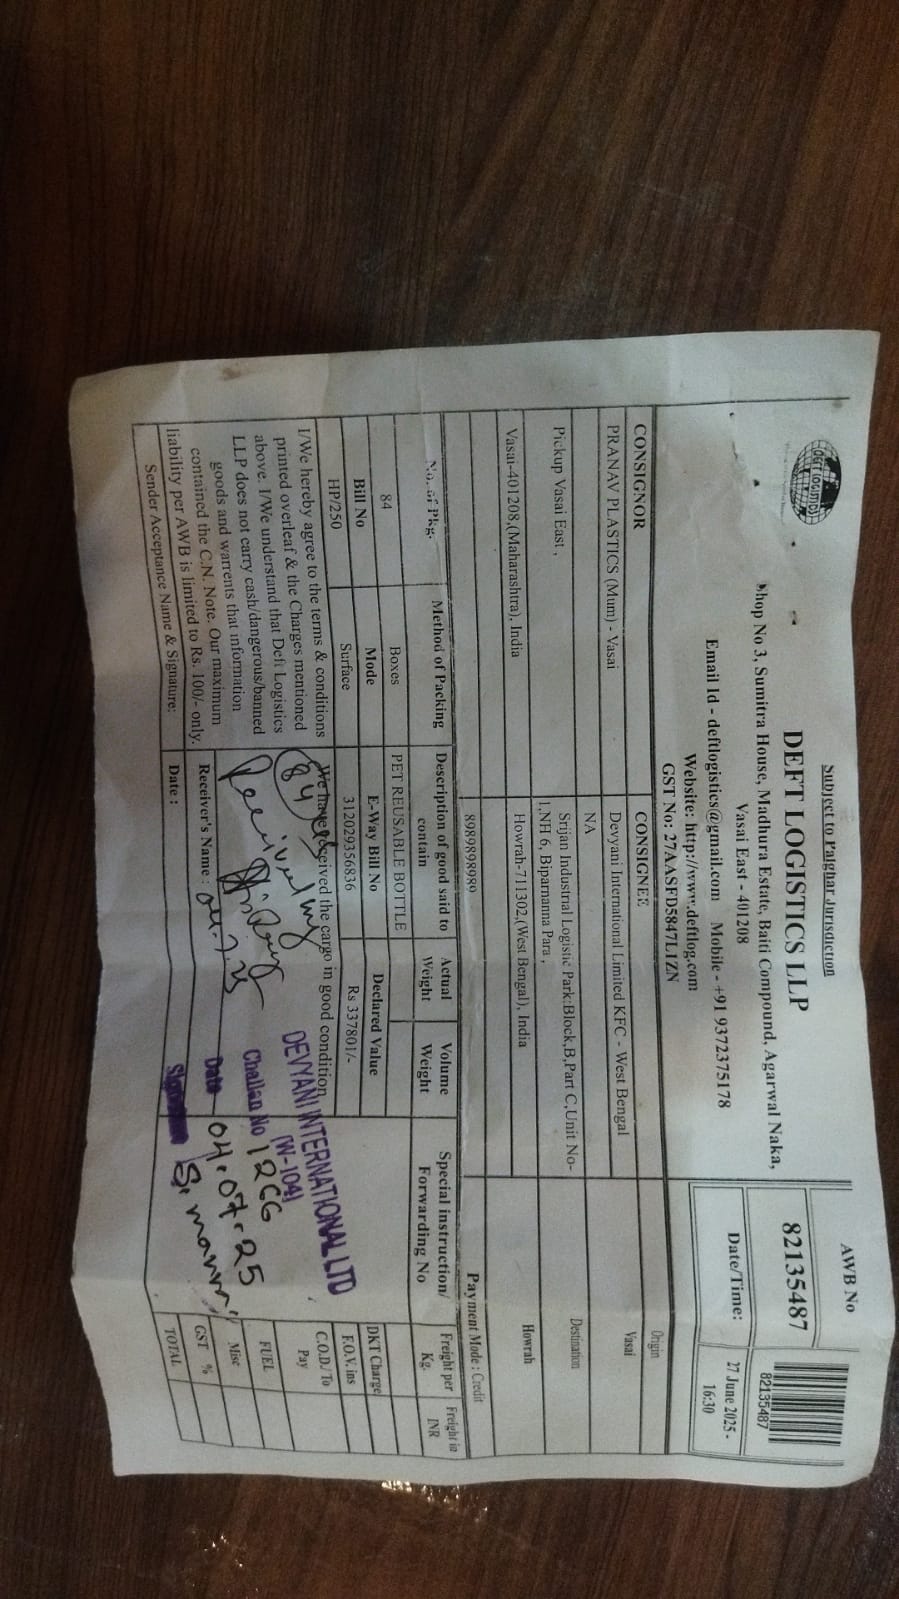 Subject to Palghar Jurisdiction
DEFT LOGISTICS LLP
Shop No 3, Sumitra House, Madhura Estate, Baiti Compound, Agarwal Naka,
Vasai East - 401208
Email Id - deftlogistics@gmail.com Mobile - +91 9372375178
Website: http://www.deftlog.com
GST No: 27AASFD5847L1ZN
AWB No
82135487
82135487
Date/Time:
27 June 2025 -
16:30
CONSIGNOR
CONSIGNEE
Origin
PRANAV PLASTICS (Mum) - Vasai
Devyani International Limited KFC - West Bengal
Vasai
NA
Destination
Pickup Vasai East ,
Srijan Industrial Logistic Park:Block,B,Part C,Unit No-
1,NH 6, Biparnanna Para ,
Howrah
Vasai-401208,(Maharashtra), India
Howrah-711302,(West Bengal), India
8989898989
Payment Mode : Credit
No. of Pkg.
Method of Packing
Description of good said to contain
Actual Weight
Volume Weight
Special instruction/ Forwarding No
Freight per Kg.
Freight in INR
84
Boxes
PET REUSABLE BOTTLE
Bill No
Mode
E-Way Bill No
Declared Value
DKT Charge
HP/250
Surface
312029356836
Rs 337801/-
F.O.V. ins
C.O.D./To Pay
FUEL
Misc
GST %
TOTAL
I/We hereby agree to the terms & conditions
printed overleaf & the Charges mentioned
above. I/We understand that Deft Logistics
LLP does not carry cash/dangerous/banned
goods and warrents that information
contained the C.N. Note. Our maximum
liability per AWB is limited to Rs. 100/- only.
Sender Acceptance Name & Signature:
We have received the cargo in good condition
84
Received
Receiver's Name :
Date :
DEVYANI INTERNATIONAL LTD
(W-104)
Challan No 1266
Date 04.07.25